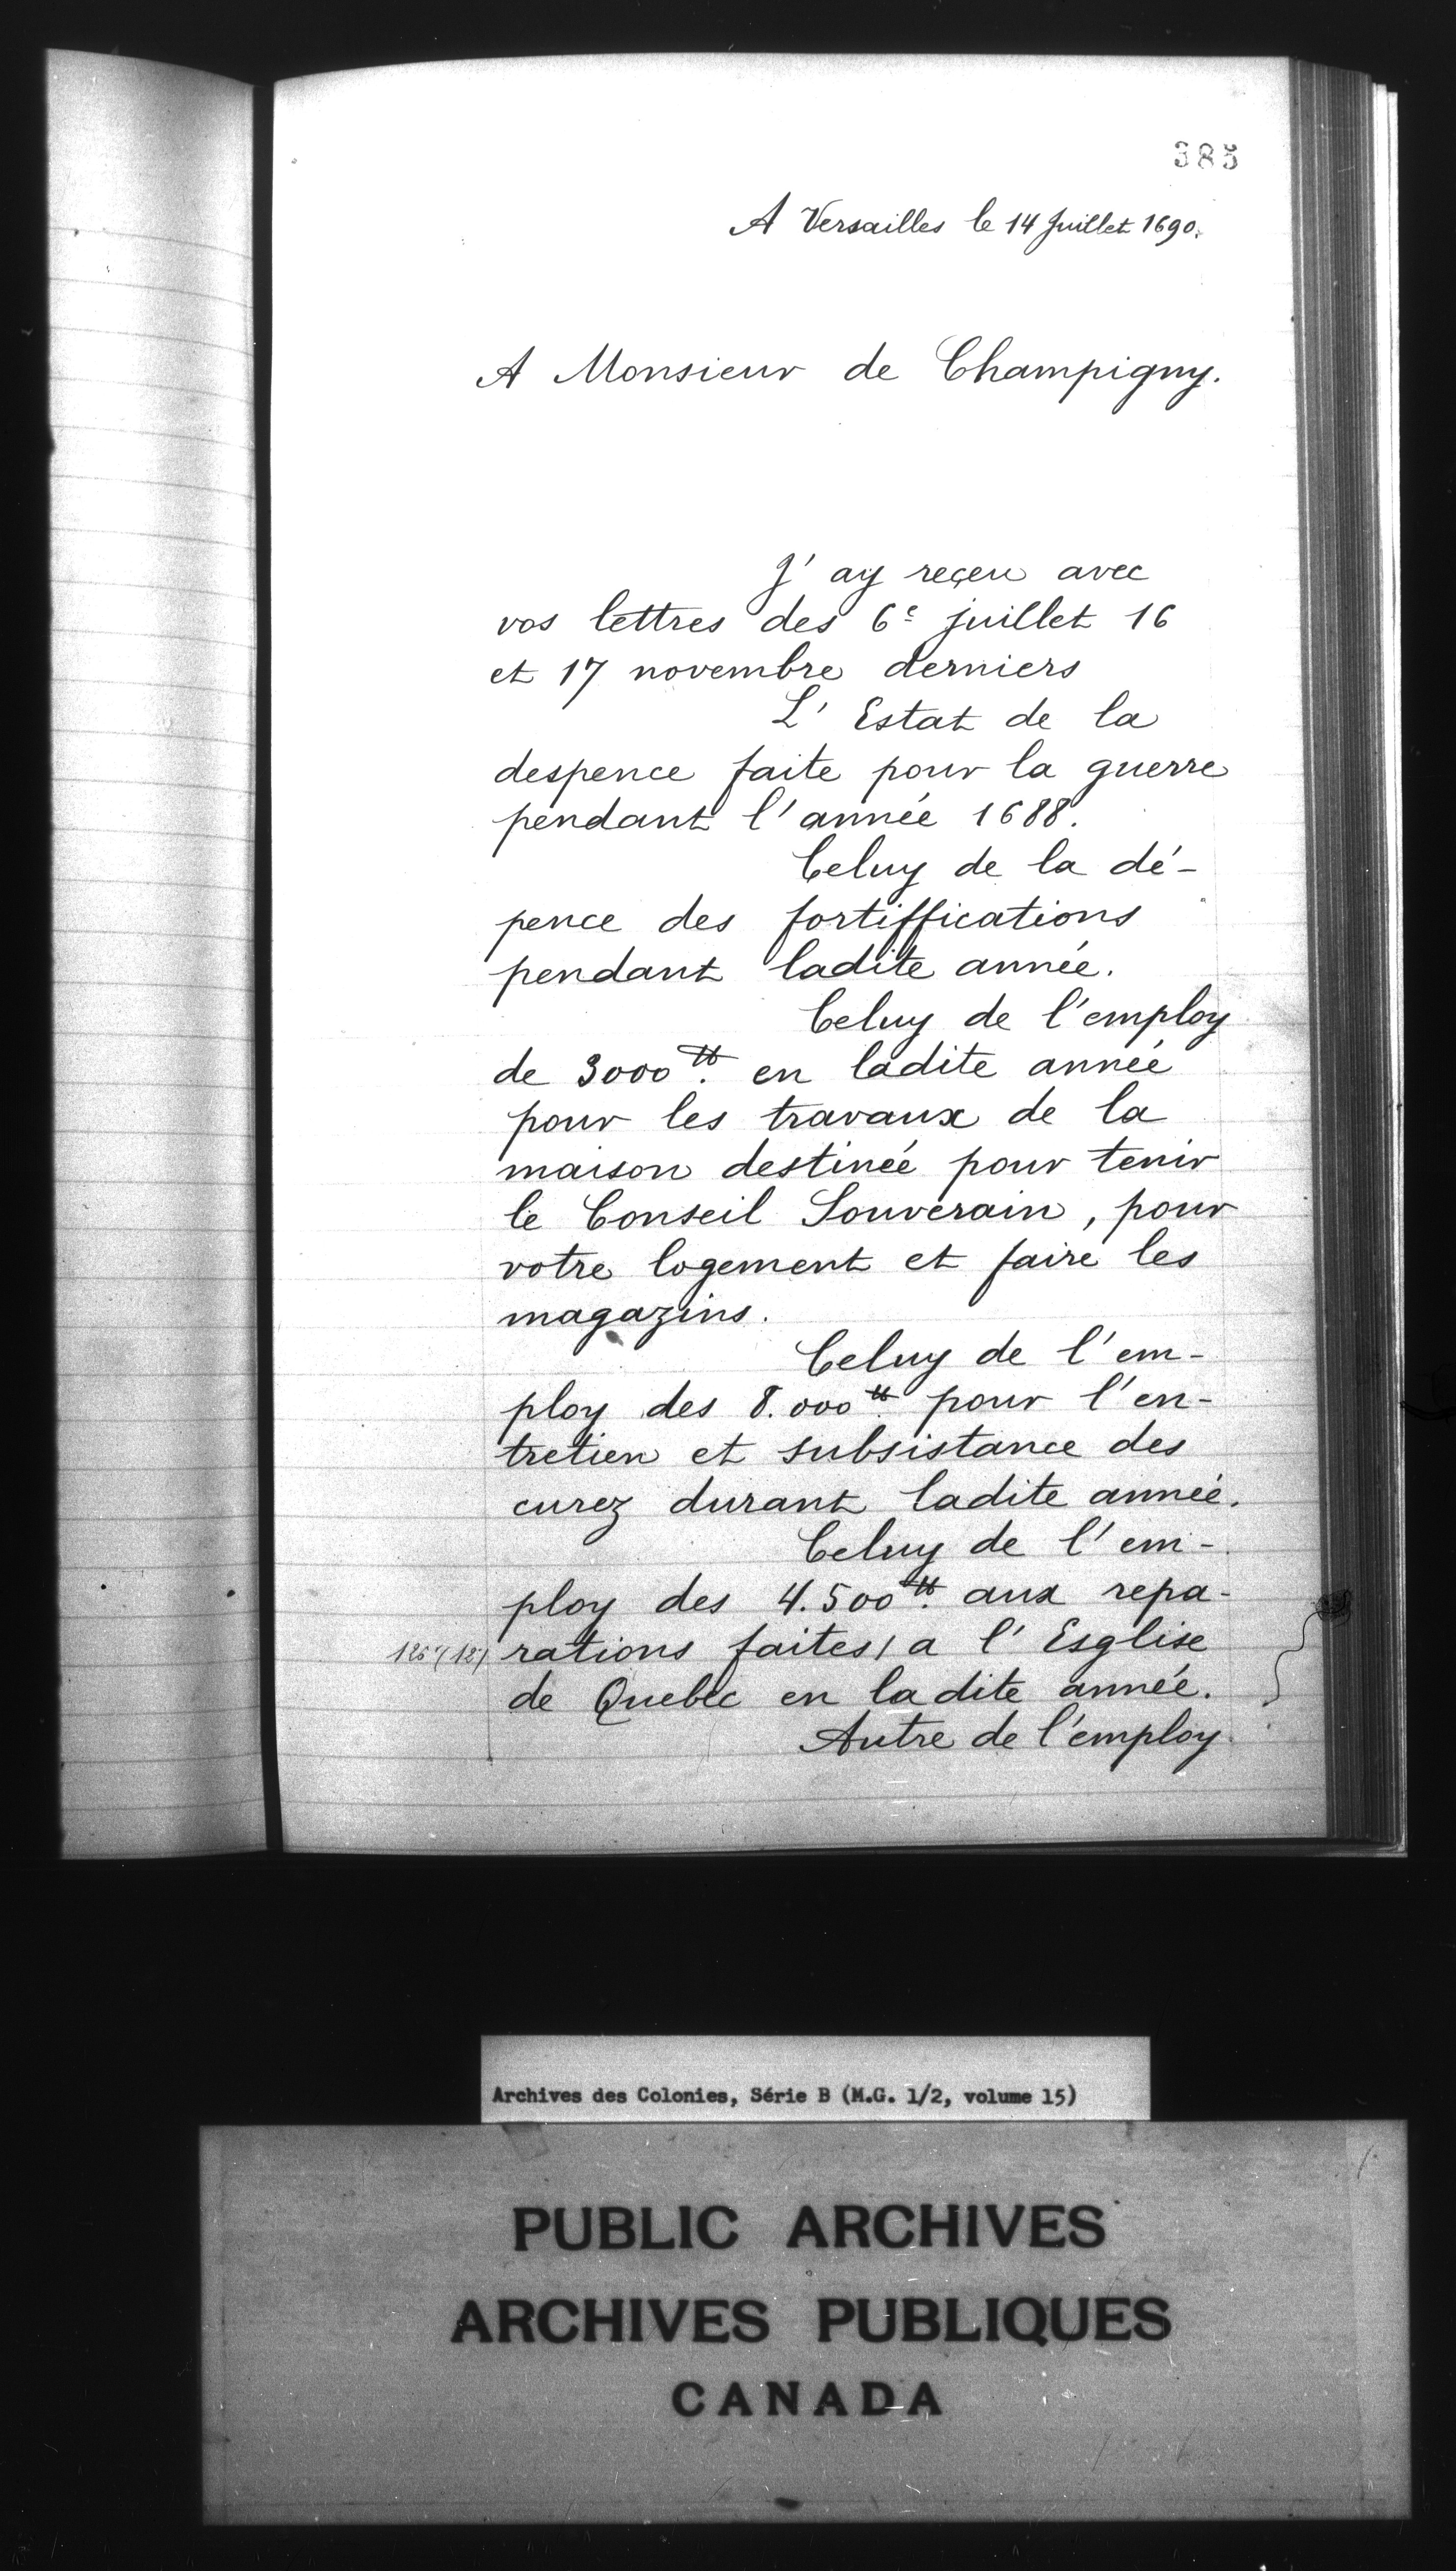 385
A Versailles le 14 Juillet 1690.
A Monsieur de Champigny.
J'ay reçeu avec
vos lettres des 6e juillet 16
et 17 novembre derniers
L'Estat de la
despence faite pour la guerre
pendant l'année 1688.
Celuy de la dé-
pence des fortiffications
pendant ladite année.
Celuy de l'employ
de 3000tt. en ladite année
pour les travaux de la
maison destinée pour tenir
le Conseil Souverain, pour
votre logement et faire les
magazins.
Celuy de l'em-
ploy des 8.000tt. pour l'en-
tretien et subsistance des
curez durant ladite année.
Celuy de l'em-
ploy des 4.500tt. aux repa-
rations faites/a l'Esglise
de Quebec en ladite année.
Autre de l'employ
Archives des Colonies, Série B (M.G. 1/2, volume 15)
PUBLIC ARCHIVES
ARCHIVES PUBLIQUES
CANADA